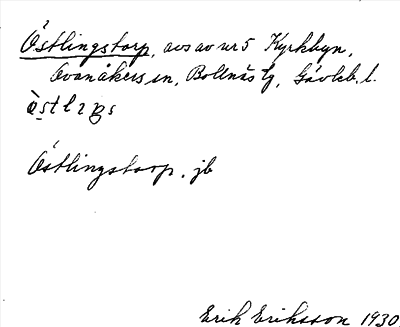 Östlingstorp, avs av nr 5 Kyrkbyn,
Ovanåkers sn, Bollnäs tg, Gävleb. l.
Östlingstorp, jb
Erik Eriksson 1930